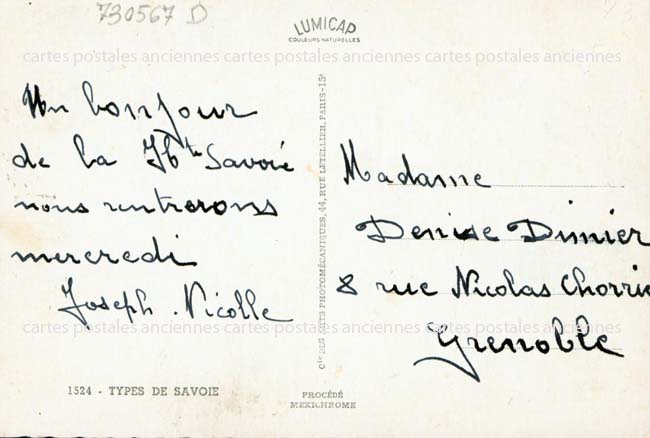 730567 D
LUMICAP
COULEURS NATURELLES
cartes postales anciennes cartes postales anciennes cartes postales anciennes
Un bonjour
de la Hte Savoie
nous rentrerons
mercredi
Joseph. Nicolle
Cie DES ARTS PHOTOMÉCANIQUES, 44, RUE LETELLIER, PARIS-15e
Madame
Denise Dimier
8 rue Nicolas Chorrie
Grenoble
cartes postales anciennes cartes postales anciennes cartes postales anciennes
1524 - TYPES DE SAVOIE
PROCÉDÉ
MEXICHROME